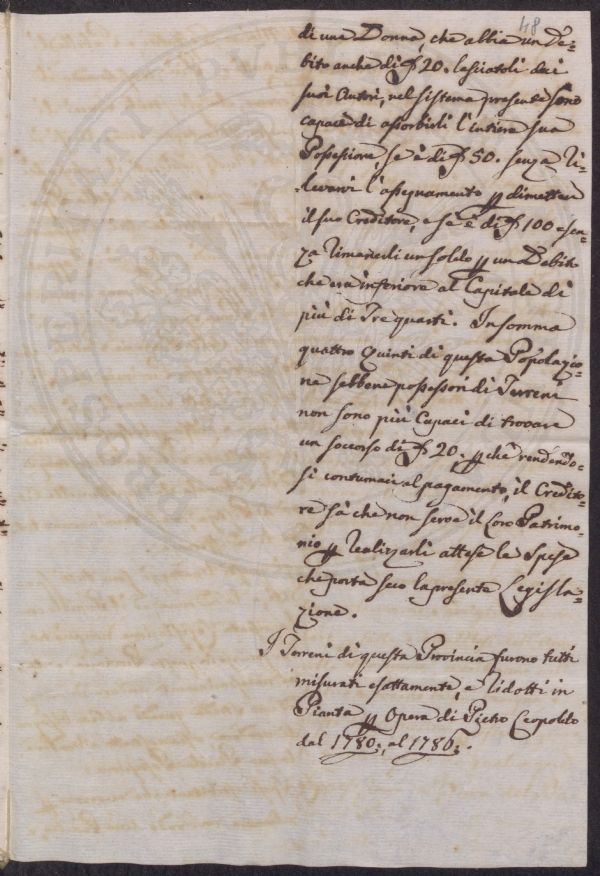 48
di una Donna, che abbia un De=
bito anche di ₤ 20. lasciatoli dai
suoi Autori, nel sistema presente sono
capaci di assorbirli l'intiera sua
Possessione, se è di ₤ 50. senza ri=
levarvi l'assegnamento p dimettere
il suo Creditore, e se è di ₤ 100 e sen=
za rimanerli un soldo p un Debito
che era inferiore al Capitale di
più di Tre quarti. In somma
quattro quinti di questa Popolazio=
ne sebbene possessori di Terreni
non sono più capaci di trovare
un soccorso di ₤ 20. p chè rendendo=
si contumaci al pagamento, il Credito=
re sà che non serve il Loro Patrimo=
nio p realizzarli attese le Spese
che porta seco la presente Legisla=
zione.
I Terreni di questa Provincia furono tutti
misurati esattamente, e ridotti in
Pianta p Opera di Pietro Leopoldo
dal 1780. al 1786.